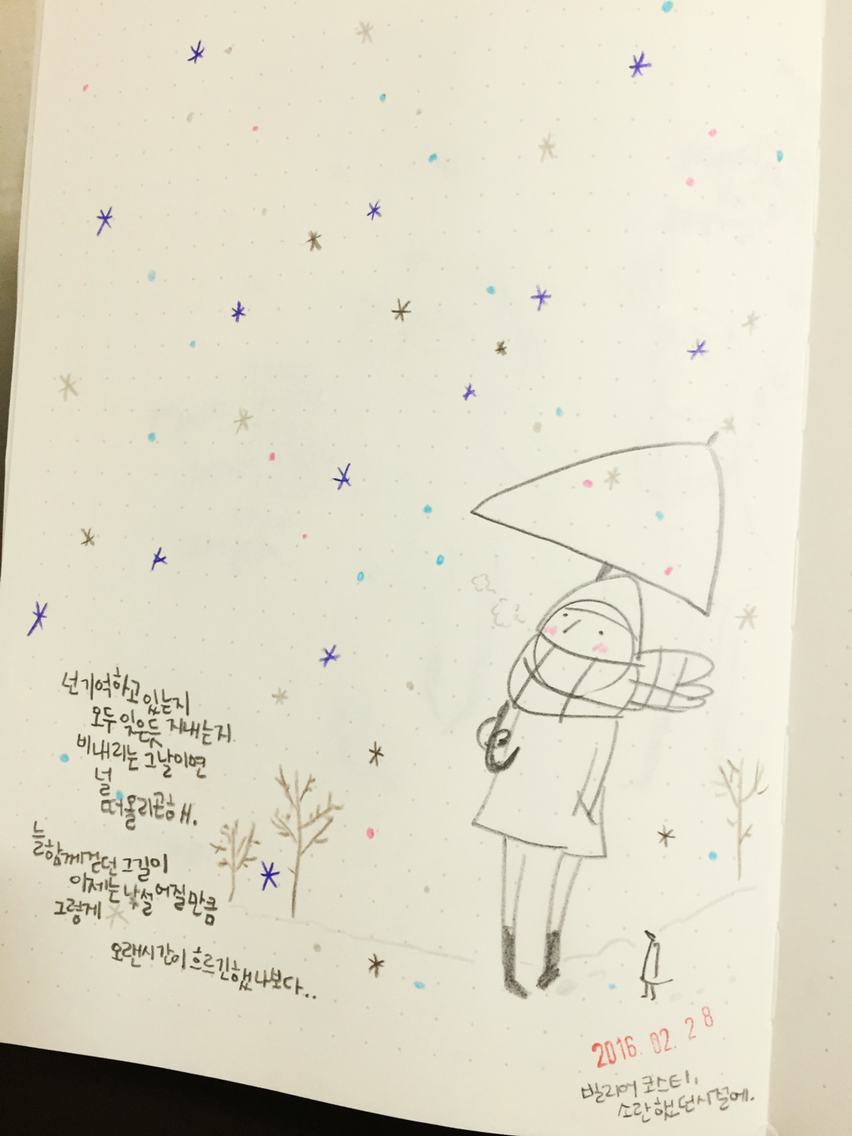 넌 기억하고 있는지
모두 잊은듯 지내는지
비내리는 그날이면
널
떠올리곤해.
늘 함께걷던 그길이
이제는 낯설어질만큼
그렇게
오랜시간이 흐르긴했나보다..
2016. 02. 28
빌리어코스티,
소란했던시절에.